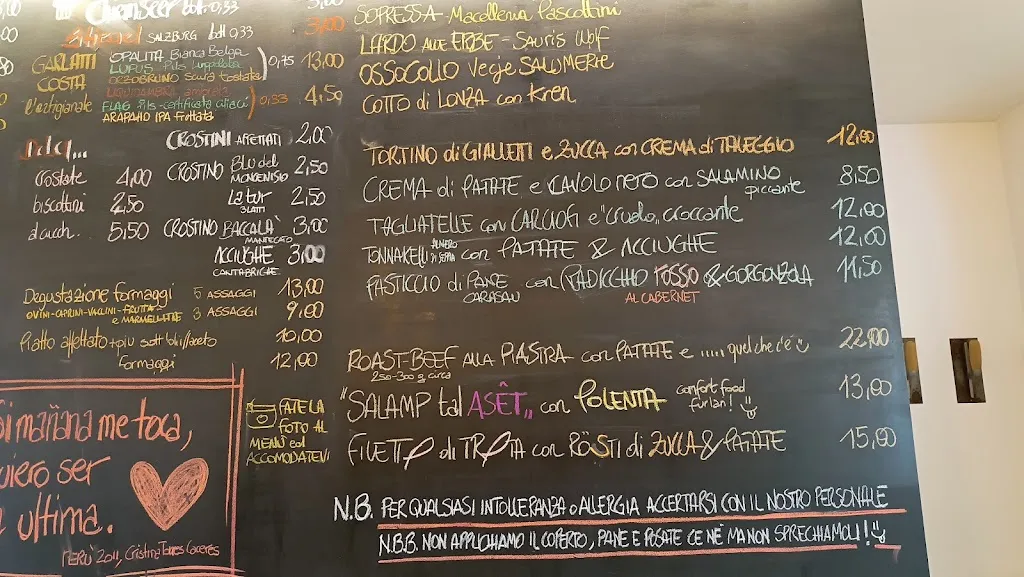 0,33 3,00
SALZBURG botl 0,33 3,00
GARLATTI OPALITA Bianca Belga
COSTA LUPUS Pils Luppolata 0,75 13,00
l'artigianale
FLAG Pils 0,33 4,50
ARAPAHO IPA Fruttata
CROSTINI AFFETTATI 2,00
Crostate 4,00
CROSTINO BLU del MONCENISIO 2,50
biscottini 2,50
La tur 3 LATTI 2,50
5,50
CROSTINO BACCALÀ MANTECATO 3,00
ACCIUGHE CONTABRICHE 3,00
Degustazione formaggi 5 ASSAGGI 13,00
OVINI-CAPRINI-VACCINI-FRUTTA e MARMELLATE 3 ASSAGGI 9,00
Piatto affettato + giu sott'olii/aceto 10,00
formaggi 12,00
FATE LA
FOTO AL
MENÙ ed
ACCOMODATEVI
Si mañana me toca,
quiero ser
la ultima.
PERÙ 2011, Cristina Torres Caceres
SOPRESSA - Macelleria Pascottini
LARDO ALLE ERBE - Sauris Wolf
OSSOCOLLO Vecje SALUMERIE
COTTO di LONZA con Kren
TORTINO di GIALLETTI e ZUCCA con CREMA di TALEGGIO 12,00
CREMA di PATATE e CAVOLO NERO con SALAMINO piccante 8,50
TAGLIATELLE con CARCIOFI e "crudo" croccante 12,00
TONNARELLI AL NERO DI SEPPIA con PATATE & ACCIUGHE 12,00
PASTICCIO di PANE CARASAU con RADICCHIO ROSSO & GORGONZOLA 11,50
AL CABERNET
ROAST-BEEF ALLA PIASTRA con PATATE e ..... quel che c'è 22,00
250-300 g circa
"SALAMP tal ASÊT" con POLENTA confort food furlan! 13,00
FILETTO di TROTA con RÖSTI di ZUCCA & PATATE 15,00
N.B. PER QUALSIASI INTOLLERANZA o ALLERGIA ACCERTARSI CON IL NOSTRO PERSONALE
N.B.B. NON APPLICHIAMO IL COPERTO, PANE E POSATE CE NÈ MA NON SPRECHIAMOLI!